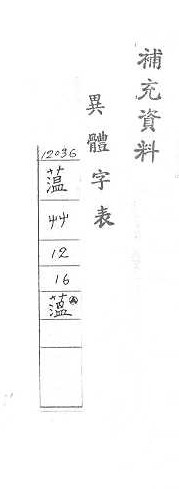 補充資料
異體字表
12036
薀
艸
12
16
薀Ⓐ